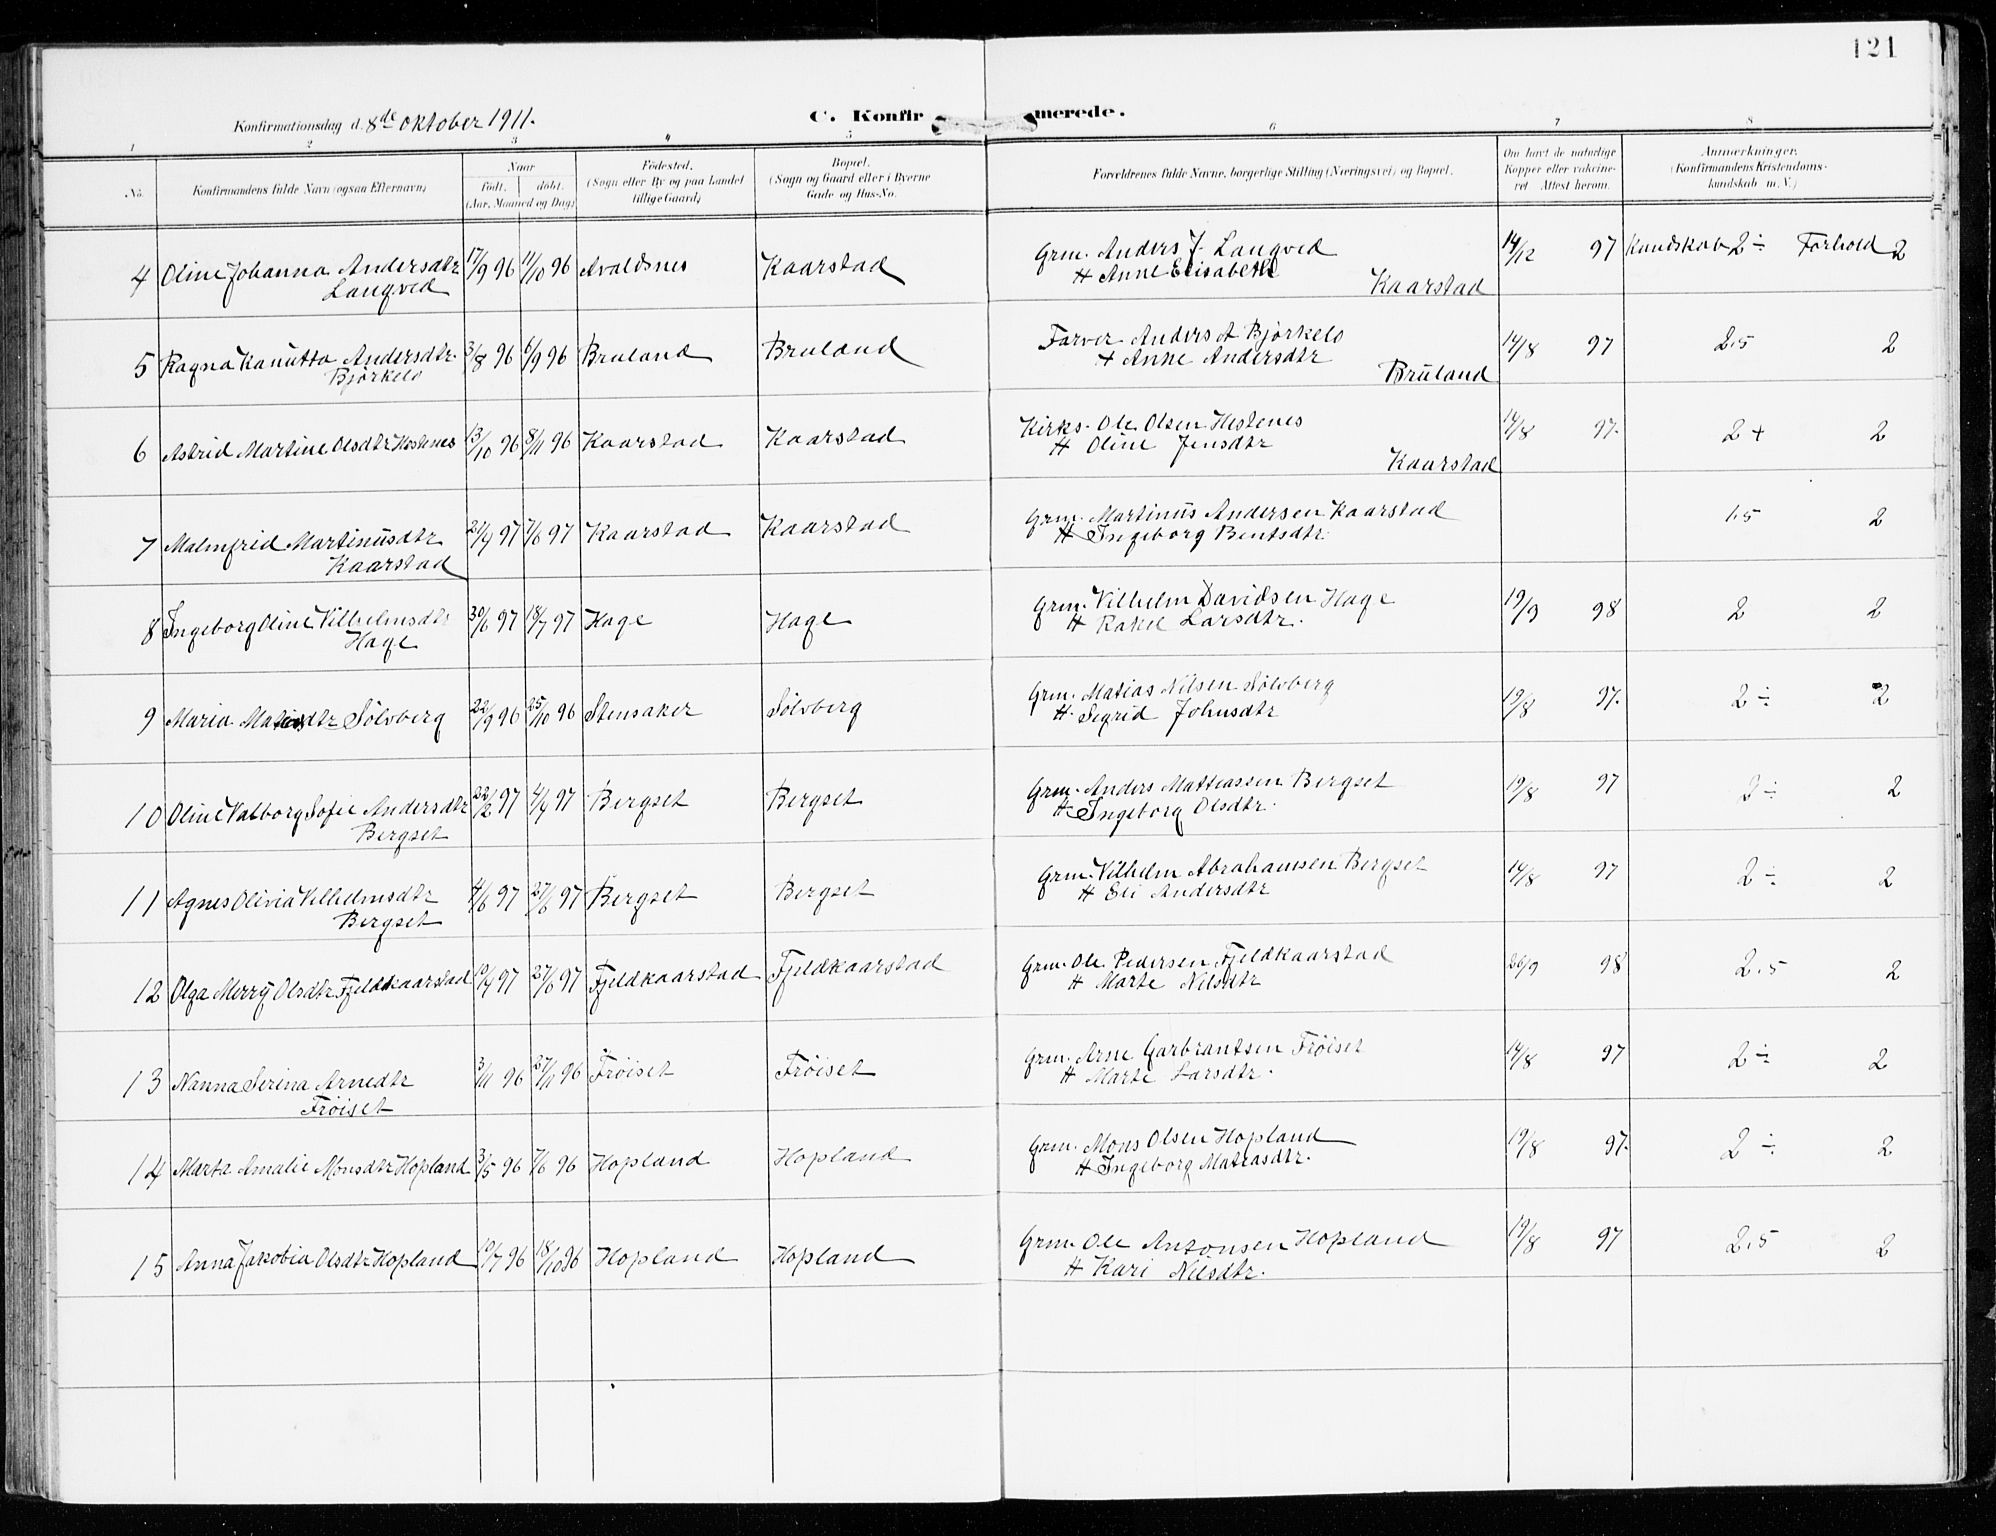 121
Konfirmationsdag d. 8de oktober 1911.
C. Konfirmerede.
1 2 3 4 5 6 7 8
No. Konfirmandens fulde Navn (ogsaa Efternavn) Naar født. døbt. (Aar, Maaned og Dag) Fødested. (Sogn eller By og paa Landet tillige Gaard) Bopæl. (Sogn og Gaard eller i Byerne Gade og Hus-No. Forældrenes fulde Navne, borgerlige Stilling (Næringsvei) og Bopæl. Om havt de naturlige Kopper eller vakcineret Attest herom. Anmærkninger. (Konfirmandens Kristendomskundskab m. V.)
4 Oline Johanna Andersdtr 17/9 96 11/10 96 Avaldsnes Kaarstad Grm. Anders J. Langved 14/12 97 Kundskab 2 ÷ Forhold 2
Langved H Anne Elisabeth
Kaarstad
5 Ragna Kanutta Andersdtr. 3/8 96 6/9 96 Bruland Bruland Farver Anders A Bjørkelo 14/8 97 2.5 2
Bjørkelo H Anne Andersdtr
Bruland
6 Astrid Martine Olsdtr Hestenes 13/10 96 8/11 96 Kaarstad Kaarstad Kirks. Ole Olsen Hestenes 14/8 97. 2 + 2
H Oline Jensdtr
Kaarstad
7 Malmfrid Martinusdtr 21/4 97 7/6 97 Kaarstad Kaarstad Grm. Martinus Andersen Kaarstad 1.5 2
Kaarstad H Ingeborg Bentsdtr.
8 Ingeborg Oline Vilhelmsdtr 30/6 97 18/7 97 Hage Hage Grm. Vilhelm Davidsen Hage 19/9 98 2 2
Hage H Rakel Larsdtr.
9 Maria Matiasdtr Sölvberg 22/9 96 25/10 96 Stensaker Sölvberg Grm. Matias Nilsen Sölvberg 19/8 97. 2 ÷ 2
H. Sigrid Johnsdtr
10 Oline Valborg Sofie Andersdtr 22/2 97 4/4 97 Bergset Bergset Grm. Anders Mattiassen Bergset 19/8 97 2 ÷ 2
Bergset H Ingeborg Olsdtr.
11 Agnes Olivia Vilhelmsdtr 4/6 97 27/6 97 Bergset Bergset Grm. Vilhelm Abrahamsen Bergset 14/8 97 2 ÷ 2
Bergset H Eli Andersdtr
12 Olga Merry Olsdtr Fjeldkaarstad 19/4 97 27/6 97 Fjeldkaarstad Fjeldkaarstad Grm. Ole Pedersen Fjeldkaarstad 26/9 98 2.5 2
H Marte Nilsdtr
13 Nanna Serina Arnedtr 3/11 96 27/11 96 Fröiset Fröiset Grm. Arne Garbrantsen Fröiset 14/8 97 2 ÷ 2
Fröiset H Marte Larsdtr.
14 Marta Amalie Monsdtr Hopland 3/5 96 7/6 96 Hopland Hopland Grm. Mons Olsen Hopland 19/8 97. 2 ÷ 2
H Ingeborg Matiasdtr.
15 Anna Jakobia Olsdtr Hopland 19/7 96 18/10 96 Hopland Hopland Grm. Ole Antonsen Hopland 19/8 97 2.5 2
H Kari Nilsdtr.